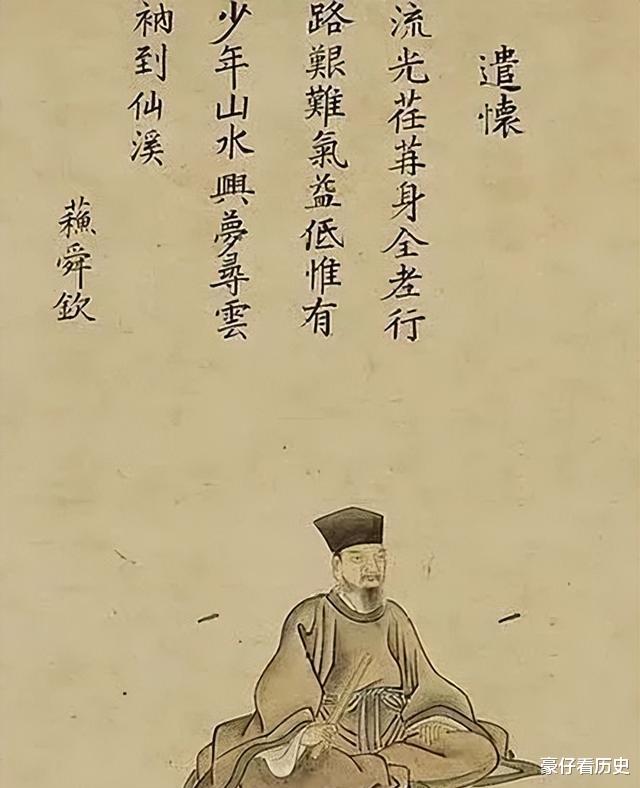 遣懷
流光荏苒身全老行
路艱難氣益低惟有
少年山水興夢尋雲
衲到仙溪
蘓舜欽
豪仔看历史